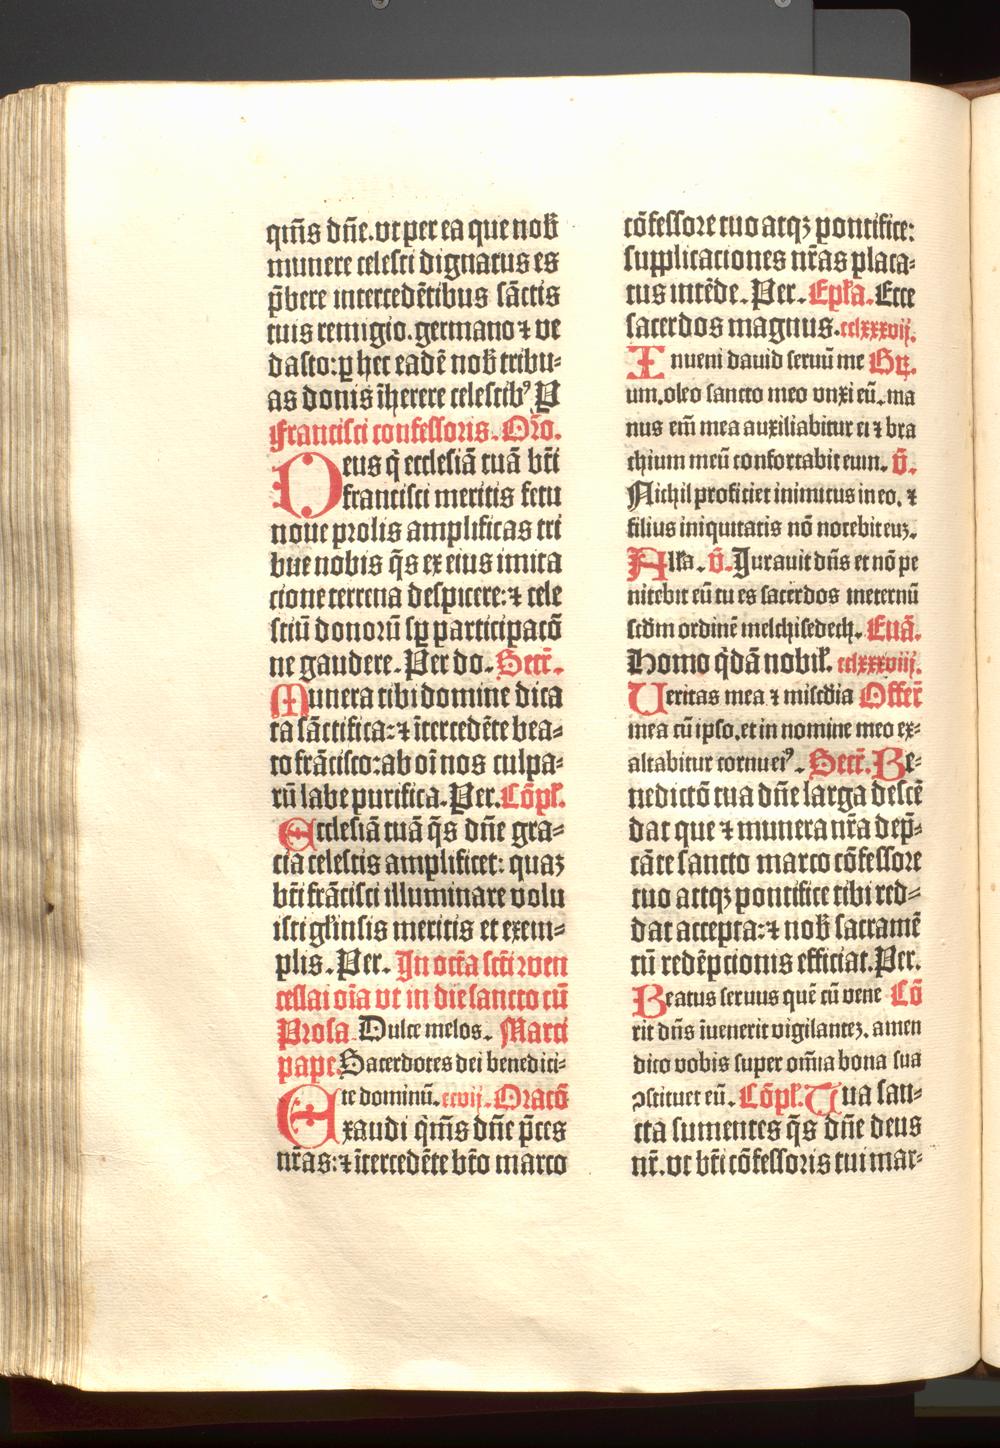 qm̃s dñe.vt per ea que nob̃
munere celesti dignatus es
p̃bere intercedẽtibus sãctis
tuis remigio.germano ⁊ ve
dasto:ꝑ hec eadẽ nob̃ tribu⸗
as donis ĩherere celestibꝰ P
Francisci confessoris. Oro.
Deus q̇ ecclesiã tuã bt̃i
francisci meritis fetu
noue prolis amplificas tri
bue nobis q̃s ex eius imita
cione terrena despicere:⁊ cele
stiũ donorũ sꝑ participacõ
ne gaudere. Per do. Secr̃.
Munera tibi domine dica
ta sãctifica:⁊ ĩtercedẽte bea⸗
to frãcisco:ab oĩ nos culpa⸗
rũ labe purifica. Per. Cõpl̃.
Ecclesiã tuã q̃s dñe gra⸗
cia celestis amplificet: quaꝫ
bt̃i frãcisci illuminare volu
isti gl̃insis meritis et exem⸗
plis. Per. In octa sct̃i wen
cessai oĩa vt in die sancto cũ
Prosa Dulce melos. Marci
pape. Sacerdotes dei benedici⸗
te dominũ. ccvij. Oracõ
Exaudi q̇m̃s dñe p̃ces
nr̃as:⁊ ĩtercedẽte bt̃o marco
cõfessore tuo atqꝫ pontifice:
supplicaciones nr̃as placa⸗
tus intẽde. Per. Epl̃a. Ecce
sacerdos magnus. cclxxxvij.
Inueni dauid seruũ me Gr̃.
um.oleo sancto meo vnxi eũ. ma
nus em̃ mea auxiliabitur ei ⁊ bra
chium meũ confortabit eum. ṽ.
Nichil proficiet inimicus in eo. ⁊
filius iniquitatis nõ nocebit euꝫ.
Alla. ṽ. Jurauit dñs et nõ pe
nitebit eũ tu es sacerdos ineternũ
scd̃m ordinẽ melchisedech. Euã.
Homo q̇dã nobil̃. cclxxxviij.
Ueritas mea ⁊ misc̃dia Offer̃
mea cũ ipso.et in nomine meo ex⸗
altabitur cornu eiꝰ. Secr̃. Be⸗
nedictõ tua dñe larga descẽ
dat que ⁊ munera nr̃a dep̃⸗
cãte sancto marco cõfessore
tuo attqꝫ pontifice tibi red⸗
dat accepta:⁊ nob̃ sacramẽ
tũ redẽpcionis efficiat. Per.
Beatus seruus quẽ cũ vene Cõ
rit dñs ĩuenerit vigilanteꝫ. amen
dico vobis super om̃ia bona sua
ꝯstituet eũ. Cõpl̃. Tua san⸗
cta sumentes q̃s dñe deus
nr̃. vt bt̃i cõfessoris tui mar⸗